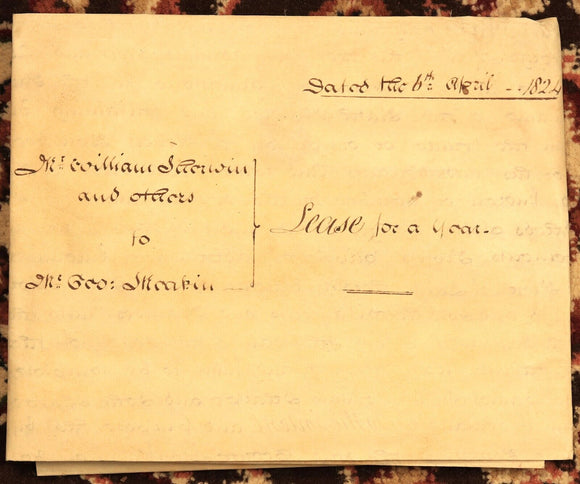 Dated the 6th April 1824
Mr William Sherwin
and others
to
Mr Geo: Meakin
Lease for a Year